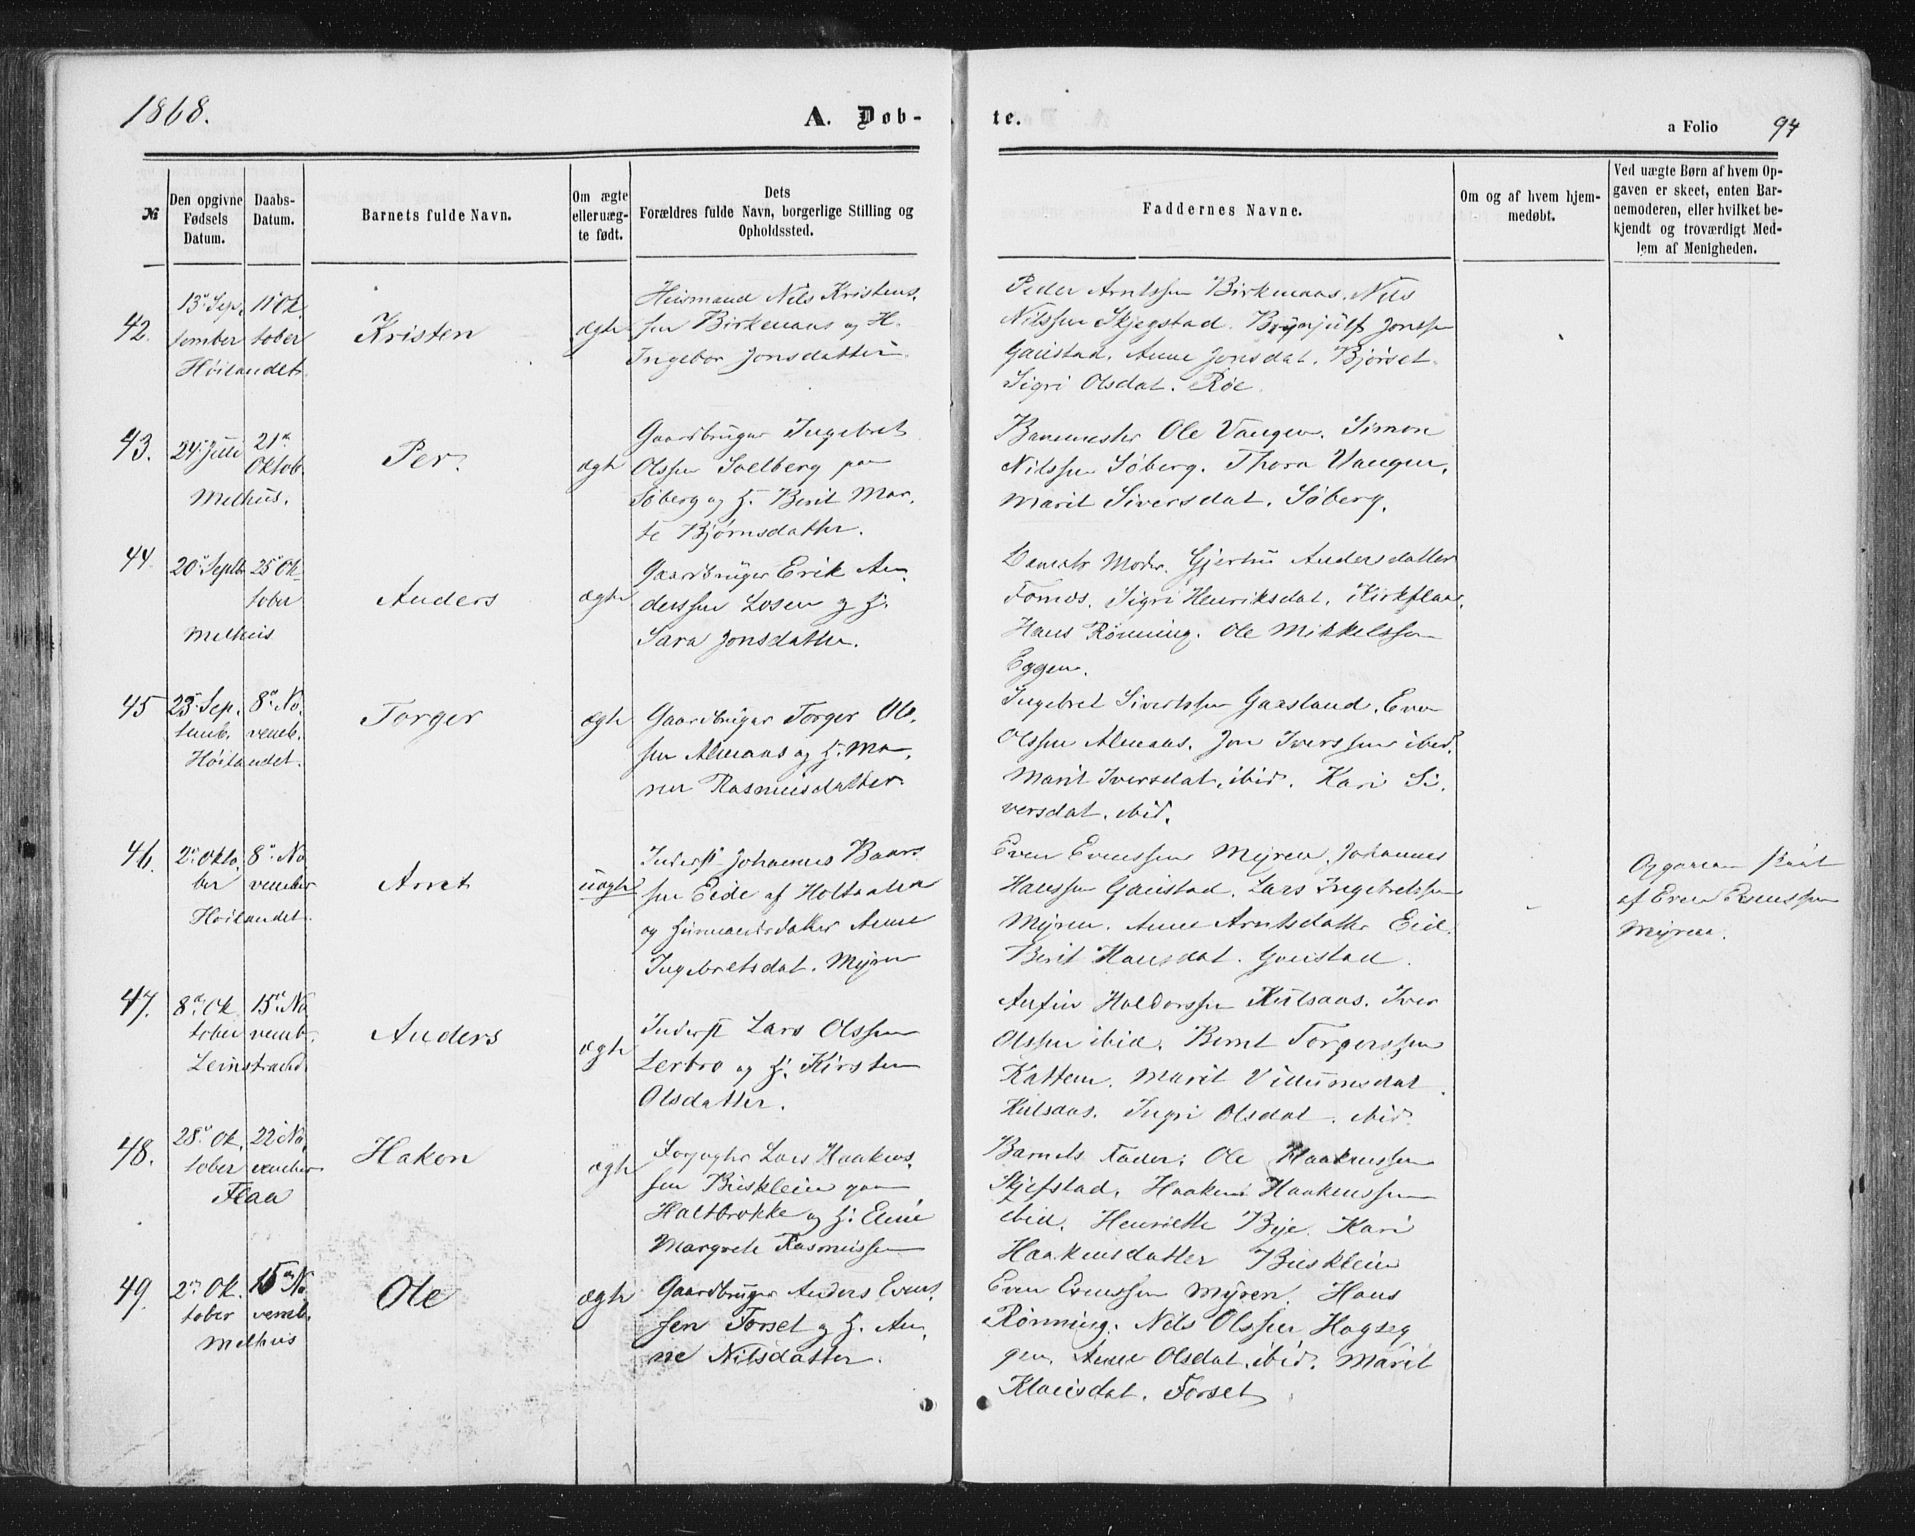 1868.
A. Døb-
te.
a Folio 94
№
Den opgivne
Fødsels
Datum.
Daabs-
Datum.
Barnets fulde Navn.
Om ægte
eller uæg-
te født.
Dets
Forældres fulde Navn, borgerlige Stilling og
Opholdssted.
Faddernes Navne.
Om og af hvem hjem-
medøbt.
Ved uægte Børn af hvem Op-
gaven er skeet, enten Bar-
nemoderen, eller hvilket be-
kjendt og troværdigt Med-
lem af Menigheden.
42.
13de Sep.
tember
11te Ok
tober
Høilandet.
Kristen
ægte
Huusmand Nils Kristens.
sen Birkenaas og H.
Ingebor Jonsdatter.
Peder Arntssen Birkenaas. Nils
Nilssen Skjegstad. Brynjulf Jonssen
Gaustad. Anne Jonsdat. Bjørset.
Sigri Olsdat. Røe.
43.
24. Juli
21de
Oktob.
Melhus.
Per.
ægte
Gaardbruger Ingebret
Olssen Solberg paa
Søberg og H. Berit Mar.
te Bjørnsdatter.
Banemester Ole Vangen. Simon
Nilssen Søberg. Thora Vangen.
Marit Siversdat. Søberg.
44.
20de Septb
25de Ok
tober
Melhus
Anders
ægte
Gaardbruger Erik An.
derssen Losen og H.
Sara Jonsdatter.
Barnets Moder. Gjertru Andersdatter
Fornes. Sigri Henriksdat. Kirkflaa.
Hans Rønning. Ole Mikkelssen
Eggen.
45
23de Sep.
temb.
8de No.
vemb.
Høilandet.
Torger
ægte
Gaardbruger Torger Ol.
sen Almaas og H. Ma.
ren Rasmusdatter.
Ingebret Sivertssen Gaasland. Even
Olssen Almaas. Jon Iverssen ibid.
Marit Iversdat. ibid. Kari Si.
versdat. ibid.
46.
2den Okto.
ber
8de No
vember
Høilandet.
Arnt
uægte
Inderst Johannes Baars
sen Eide af Holtaalen
og Huusmandsdatter Anne
Ingebretsdat. Myren
Even Evenssen Myren. Johannes
Hanssen Gaustad. Lars Ingebretssen
Myren. Anne Arntsdatter Eid.
Berit Hansdat. Gaustad.
Opgaven skeet
af Even Evenssen
Myren.
47.
8de Ok
tober
15de No
vemb.
Leinstrand.
Anders
ægte
Inderst Lars Olssen
Lerbro og H. Kirsten
Olsdatter.
Anfin Haldorssen Kulsaas. Iver
Olssen ibid. Bernt Torgerssen
Kattem. Marit Villumsdat
Kulsaas. Ingri Olsdat. ibid.
48.
28de Ok.
tober
22de No.
vember
Flaa
Hakon
ægte
Lars Haakens.
sen Busklein paa
Haltbrække og H. Eline
Margrete Rasmussen
Barnets Fader. Ole Haakenssen
Skjefstad. Haaken Haakenssen
ibid. Henriette Bye. Kari
Haakensdatter Busklein
49.
2den Ok.
tober
15de No.
vemb.
Melhus
Ole
ægte
Gaardbruger Anders Evens.
sen Forset og H. An.
ne Nilsdatter.
Even Evenssen Myren. Hans
Rønning. Nils Olssen Hagseg
gen. Anne Olsdat. ibid. Marit
Klausdat. Forset